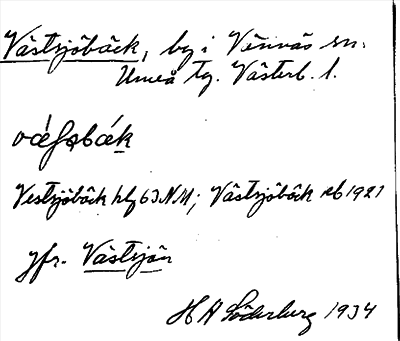 Västsjöbäck, by i Vännäs sn.
Umeå tg. Västerb. l.
Vestsjöbäck hlg 63 NM; Västsjöbäck rb 1921
jfr. Västsjön
H A Söderberg 1934